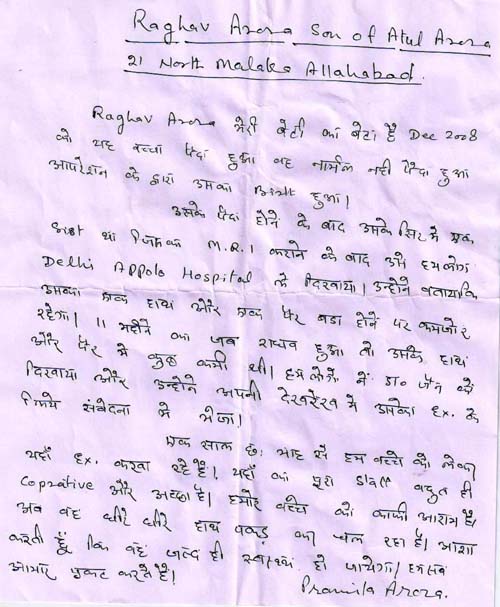 Raghav Arora Son of Atul Arora
21 North Malaka Allahabad.
Raghav Arora मेरी बेटी का बेटा है Dec 2008
को यह बच्चा पैदा हुआ वह नार्मल नही पैदा हुआ
आपरेशन के द्वारा उसका Birth हुआ।
उसके पैदा होने के बाद उसके सिर मे एक
था जिसका M.R.I कराने के बाद उसे हमलोग
Delhi Appolo Hospital मे दिखाया। उन्होने बताया कि
उसका एक हाथ और एक पैर बडा होने पर कमजोर
रहेगा। 11 महीने का जब राघव हुआ तो उसके हाथ
और पैर मे कुछ कमी थी। हम लोगो ने डा० जैन को
दिखाया और उन्होने अपनी देखरेख मे उसको Ex. के
लिये संवेदना मे भेजा।
एक साल छः माह से हम बच्चे को लेकर
यहाँ Ex. करवा रहे है। यहाँ का पूरा Staff बहुत ही
Coprative और अच्छा है। हमारे बच्चे को काफी आराम है।
अब वह धीरे धीरे हाथ पकड़ कर चल रहा है। आशा
करती हूँ कि वह जल्द ही स्वास्थ्य हो जायेगा। हम सब
आभार प्रकट करते है।
Pramila Arora.